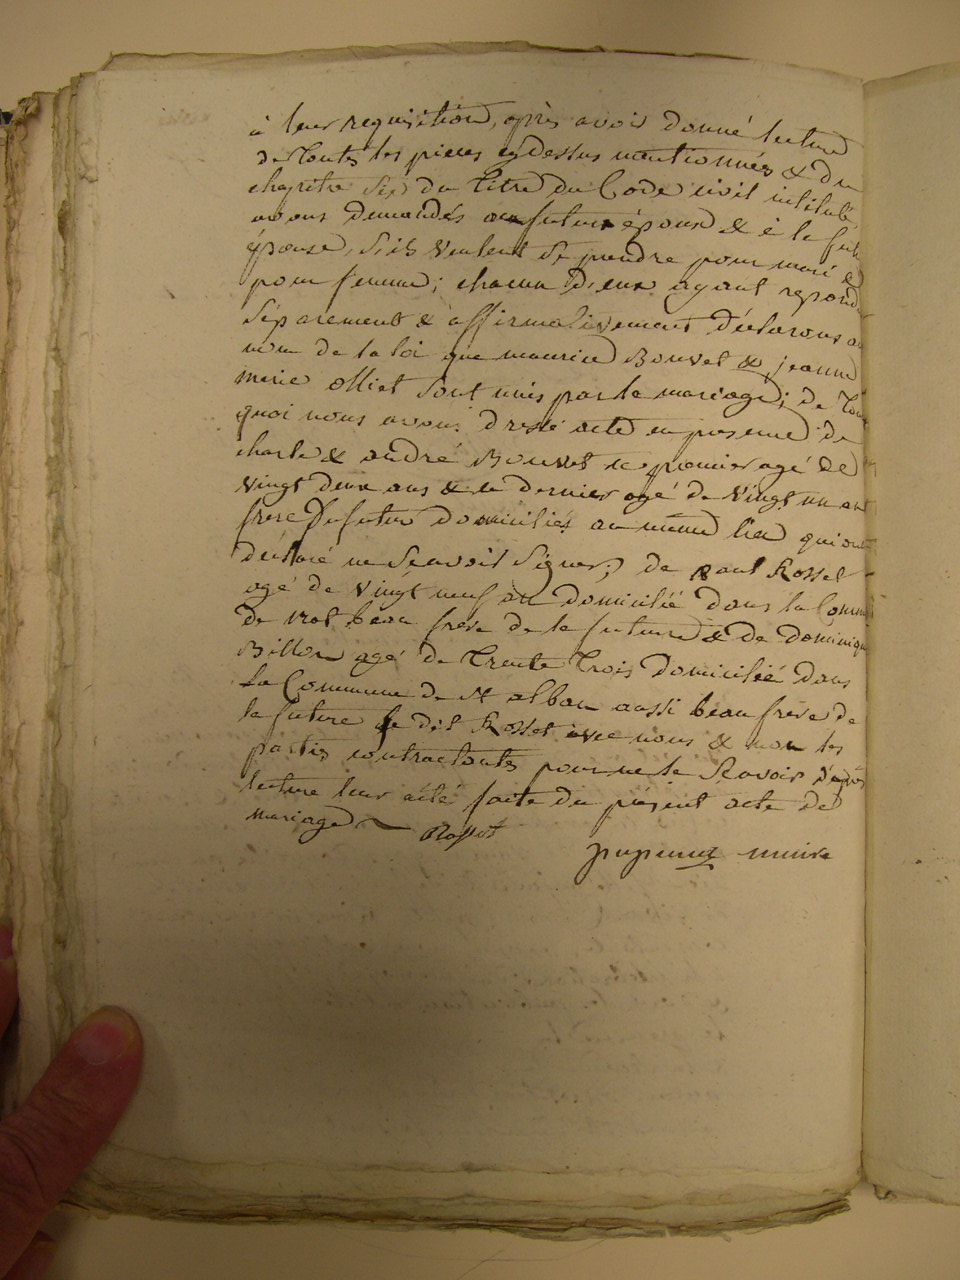 à leur requisition, après avoir donné lecture
de Toutes les pieces cydessus mentionnées & du
chapitre six du Titre du Code civil intitulé
avons demandés au futur épous & à la
épouse, s'ils veulent se prendre pour mari &
pour femme; chacun d'eux ayant repondu
séparement & affirmativement déclarons au
nom de la loi que maurice Bouvet & jeanne
marie olliet sont unis par le mariage; de
quoi nous avons dressé acte en presence de
charle & andré Bouvet le premier agé de
vingt deux ans & le dernier agé de vingt un an
frere du futur domiciliés au même lieu qui ont
déclaré ne scavoir signer; de paul Rosset
agé de vingt neuf an domicilié dans la
de beau frere de la future & de dominique
Billon agé de Trente Trois domicilié dans
la Commune de st alban aussi beau frere de
la future le dit Rosset avec nous & non les
parties contractantes pour ne le scavoir d'après
lecture leur aété faite du présent acte de
mariage Rosset
maire